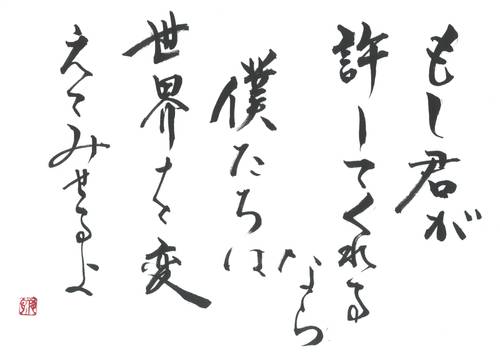 もし君が
許してくれる
なら
僕たちは
世界を変
えてみせるよ